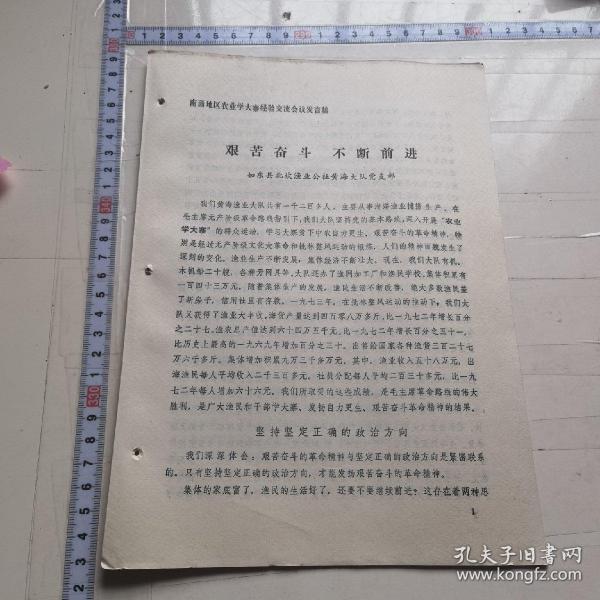 南通地区农业学大寨经验交流会议发言稿
艰苦奋斗 不断前进
如东县北坎渔业公社黄海大队党支部
我们黄海渔业大队共有一千二百多人，主要从事海洋渔业捕捞生产。在
毛主席无产阶级革命路线指引下，我们大队坚持党的基本路线，深入开展“农业
学大寨”的群众运动，学习大寨贫下中农自力更生、艰苦奋斗的革命精神，特
别是经过无产阶级文化大革命和批林整风运动的锻炼，人们的精神面貌发生了
深刻的变化。渔业生产不断发展，集体经济不断壮大。现在，我们大队有机、
木帆船二十艘，各种劳网具等，大队还办了渔网加工厂和渔民学校。集体积累有
一百四十三万元。随着集体生产的发展，渔民生活不断改善，绝大多数渔民盖
了新房子，信用社里有存款。一九七三年，在批林整风运动的推动下，我们大
队又获得了渔业大丰收，海货产量达到四百零八万多斤，比一九七二年增长百分
之二十七。渔农总产值达到六十四万五千元，比一九七二年增长百分之三十一，
比历史上最高的一九六九年增加百分之三十。出售给国家各种渔货三百二十七
万六千多斤。集体增加积累九万二千多万元，其中，渔业收入五十八万元，出
海渔民每人平均收入二千三百多元，社员分配每人平均二百三十多元，比一
九七二年每人增加六十六元。我们所取得的这些成绩，是毛主席革命路线的伟大
胜利，是广大渔民和干部学大寨、发扬自力更生、艰苦奋斗革命精神的结果。
坚持坚定正确的政治方向
我们深深体会：艰苦奋斗的革命精神与坚定正确的政治方向是紧密联系
的。只有坚持坚定正确的政治方向，才能发扬艰苦奋斗的革命精神。
集体的家底富了，渔民的生活好了，还要不要继续前进？这存在着两种思
1
孔夫子旧书网
www.kongfz.com